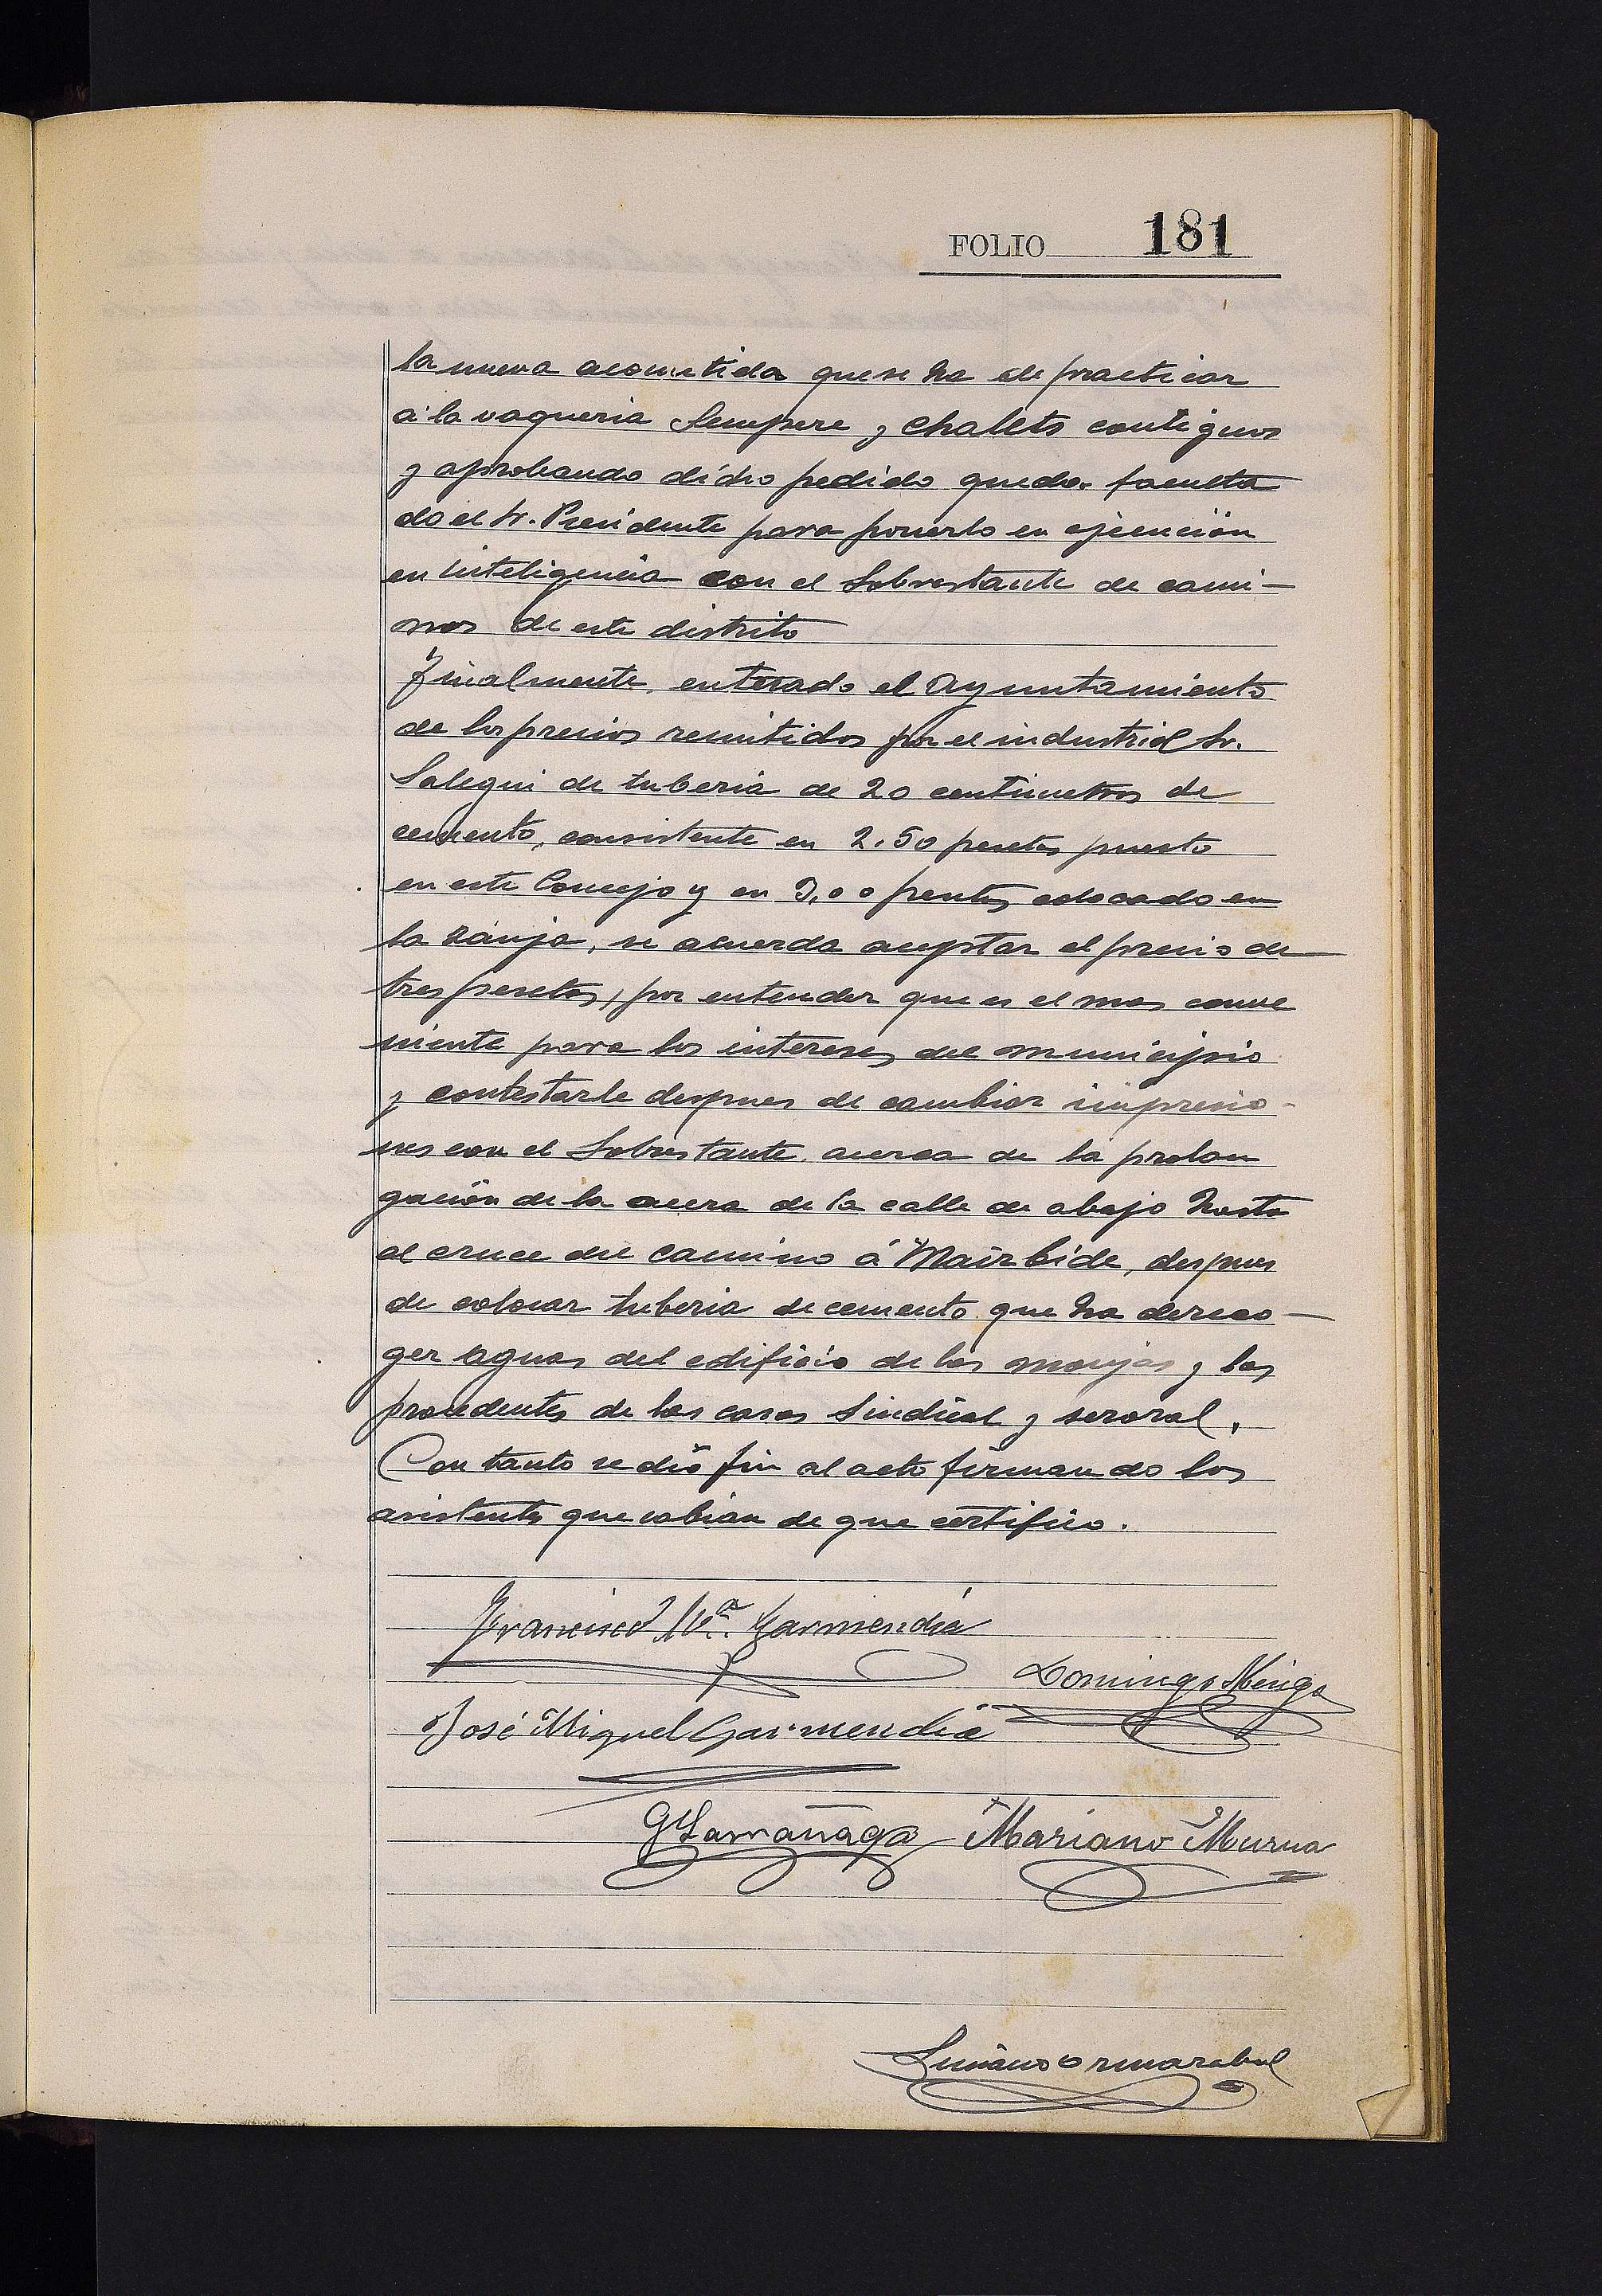 FOLIO 181
la nueva acometida que se ha de practicar
á la vaqueria Sempere y chalets contiguos
y aprobando dicho pedido queda faculta
do el Sr. Presidente para ponerlo en ejecución
en inteligencia con el Sobrestante de cami-
nos de este distrito
Finalmente, enterado el Ayuntamiento
de los precios remitidos por el industrial Sr.
Salegui de tuberia de 20 centimetros de
cemento, consistente en 2.50 pesetas puesto
en este Concejo y en 3,00 pesetas colocado en
la zanja, se acuerda aceptar el precio de
tres pesetas, por entender que es el mas conve
niente para los intereses del municipio
y contestarle despues de cambiar impresio-
nes con el Sobrestante acerca de la prolon
gación de la acera de la calle de abajo hasta
el cruce del camino á Mairbide, despues
de colocar tuberia de cemento que ha de reco-
ger aguas del edificio de las monjas y las
procedentes de las casas Sindical y seroral.
Con tanto se dió fin al acto firmando los
asistentes que sabian de que certifico.
Francisco Mª. Garmendia
Domingo
José Miguel Garmendia
G Larrañaga Mariano Murua
Luciano Ormazabal